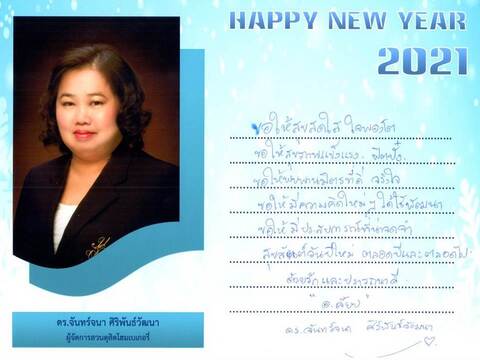 HAPPY NEW YEAR
2021
ขอให้สุขสดใส ใจพองโต
ขอให้สุขภาพแข็งแรง ฟิตปั๋ง
ขอให้พบพานมิตรที่ดี จริงใจ
ขอให้มีความคิดใหม่ๆ ได้ใช้พัฒนา
ขอให้มีประสบการณ์ที่น่าจดจำ
สุขสันต์วันปีใหม่ ตลอดปีและตลอดไป
ด้วยรักและปรารถนาดี
ดร.จันทร์จนา ศิริพันธ์วัฒนา
ดร.จันทร์จนา ศิริพันธ์วัฒนา
ผู้จัดการสวนดุสิตโฮมเบเกอรี่